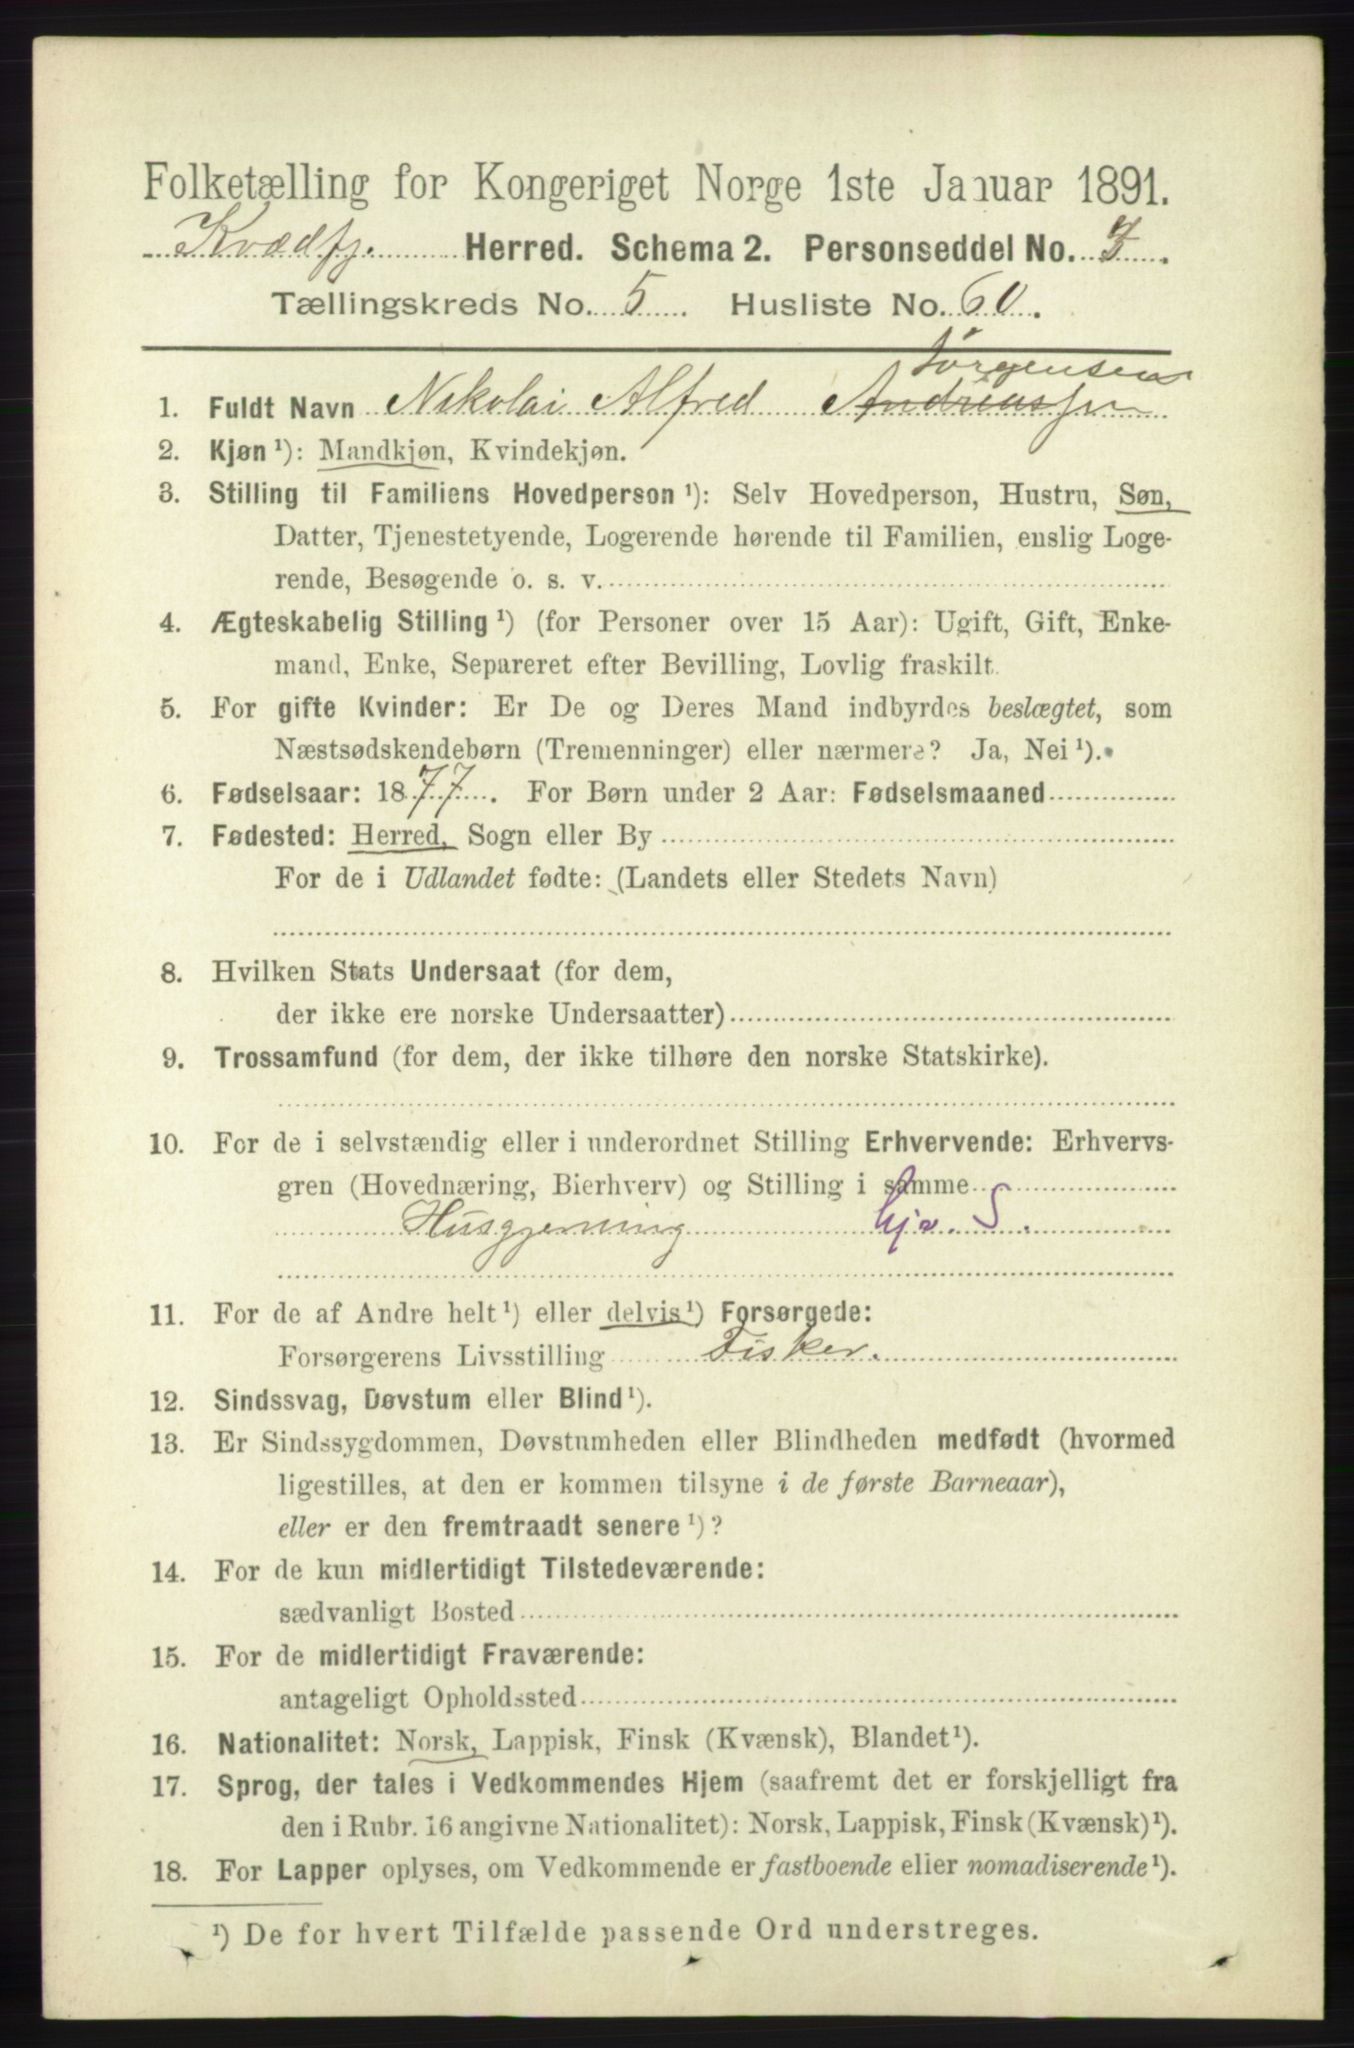 Folketælling for Kongeriget Norge 1ste Januar 1891.
Kvædfj. Herred. Schema 2. Personseddel No. 3.
Tællingskreds No. 5. Husliste No. 60.
Jørgensen
1. Fuldt Navn Nikolai Alfred Andreassen
2. Kjøn ¹): Mandkjøn, Kvindekjøn.
3. Stilling til Familiens Hovedperson ¹): Selv Hovedperson, Hustru, Søn,
Datter, Tjenestetyende, Logerende hørende til Familien, enslig Loge-
rende, Besøgende o. s. v.
4. Ægteskabelig Stilling ¹) (for Personer over 15 Aar): Ugift, Gift, Enke-
mand, Enke, Separeret efter Bevilling, Lovlig fraskilt.
5. For gifte Kvinder: Er De og Deres Mand indbyrdes beslægtet, som
Næstsødskendebørn (Tremenninger) eller nærmere? Ja, Nei ¹).
6. Fødselsaar: 1877. For Børn under 2 Aar: Fødselsmaaned
7. Fødested: Herred, Sogn eller By
For de i Udlandet fødte: (Landets eller Stedets Navn)
8. Hvilken Stats Undersaat (for dem,
der ikke ere norske Undersaatter)
9. Trossamfund (for dem, der ikke tilhøre den norske Statskirke).
10. For de i selvstændig eller i underordnet Stilling Erhvervende: Erhvervs-
gren (Hovednæring, Bierhverv) og Stilling i samme
Husgjerning hjv. S.
11. For de af Andre helt ¹) eller delvis ¹) Forsørgede:
Forsørgerens Livsstilling Fisker.
12. Sindssvag, Døvstum eller Blind ¹).
13. Er Sindssygdommen, Døvstumheden eller Blindheden medfødt (hvormed
ligestilles, at den er kommen tilsyne i de første Barneaar),
eller er den fremtraadt senere ¹)?
14. For de kun midlertidigt Tilstedeværende:
sædvanligt Bosted
15. For de midlertidigt Fraværende:
antageligt Opholdssted
16. Nationalitet: Norsk, Lappisk, Finsk (Kvænsk), Blandet ¹).
17. Sprog, der tales i Vedkommendes Hjem (saafremt det er forskjelligt fra
den i Rubr. 16 angivne Nationalitet): Norsk, Lappisk, Finsk (Kvænsk) ¹).
18. For Lapper oplyses, om Vedkommende er fastboende eller nomadiserende ¹).
¹) De for hvert Tilfælde passende Ord understreges.